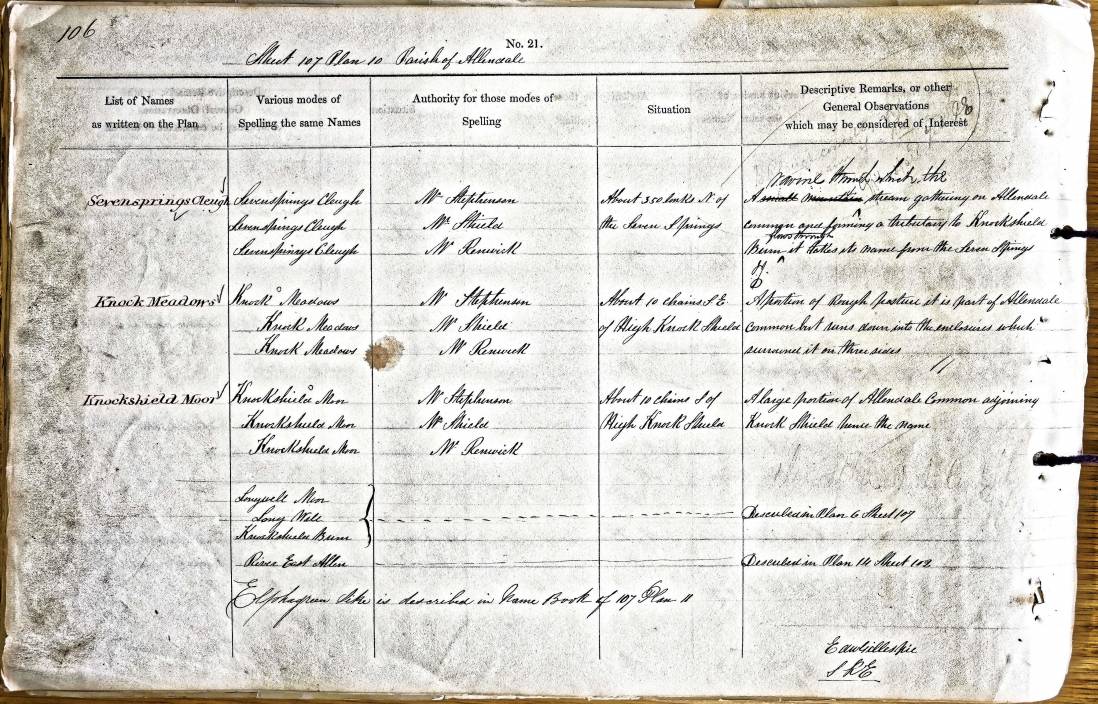 106
No. 21.
Sheet 107 Plan 10 Parish of Allendale
List of Names
as written on the Plan
Various modes of
Spelling the same Names
Authority for those modes of
Spelling
Situation
Descriptive Remarks, or other
General Observations
which may be considered of Interest
ravine through which the
Sevensprings Cleugh Sevensprings Cleugh Mr Stephenson About 350 links N. of A small mountain stream gathering on Allendale
Sevensprings Cleugh Mr Shield the Seven Springs common and forming a tributary to Knockshield
flows through
Sevensprings Cleugh Mr Renwick Burn it takes its name from the Seven Springs
Knock Meadows Knock Meadows Mr Stephenson About 10 chains S.E. A portion of Rough pasture it is part of Allendale
Knock Meadows Mr Shield of High Knock Shield common but runs down into the enclosures which
Knock Meadows Mr Renwick surround it on three sides
Knockshield Moor Knockshield Moor Mr Stephenson About 10 chains S of A large portion of Allendale Common adjoining
Knockshield Moor Mr Shield High Knock Shield Knock Shield hence the name
Knockshield Moor Mr Renwick
Longwell Moor
Long Well Described in Plan 6 Sheet 107
Knockshield Burn
River East Allen Described in Plan 14 Sheet 102
Elphagreen Sike is described in Name Book of 107 Plan 11
Edw Gillespie
S R E